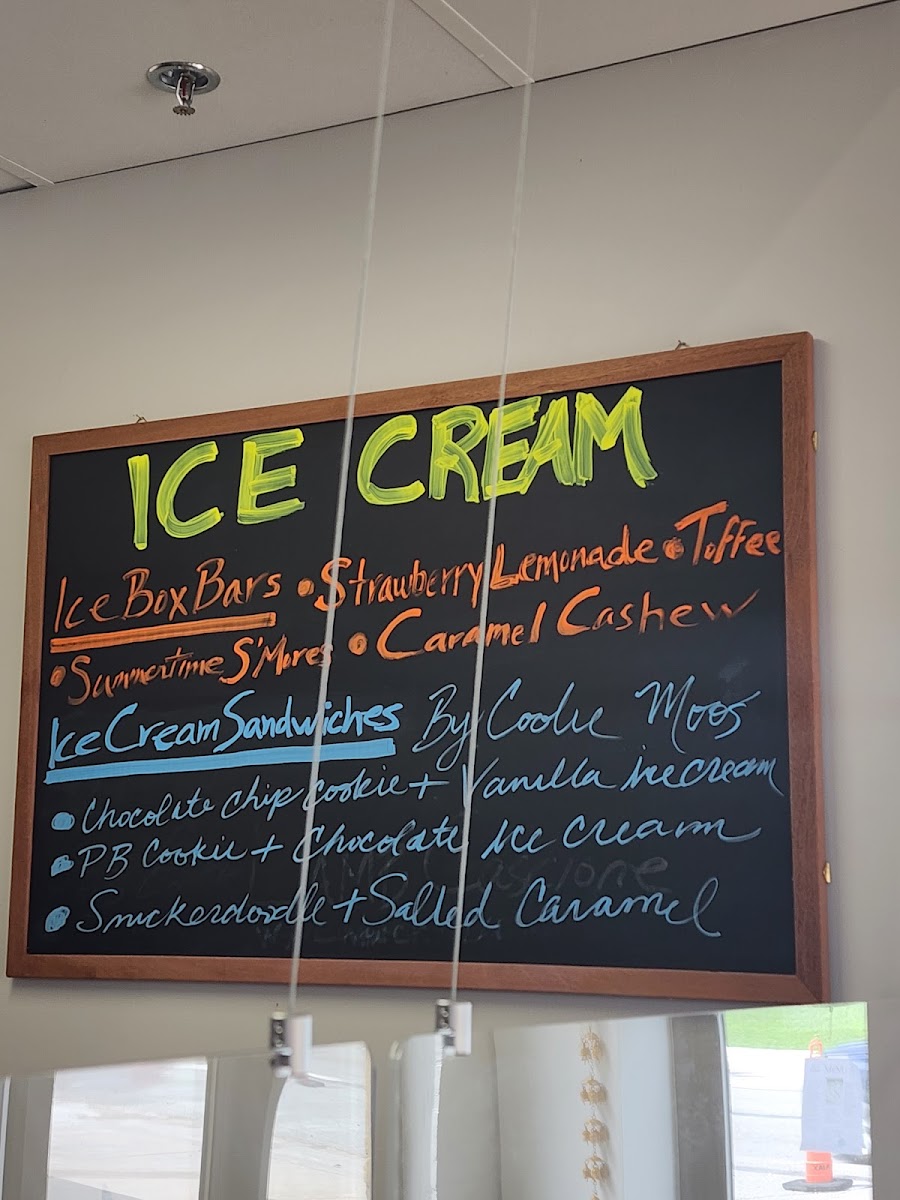 ICE CREAM
Ice Box Bars • Strawberry Lemonade • Toffee
• Summertime S'Mores • Caramel Cashew
Ice Cream Sandwiches By Cookie Moos
• Chocolate chip cookie + Vanilla ice cream
• PB Cookie + Chocolate ice cream
• Snickerdoodle + Salted Caramel